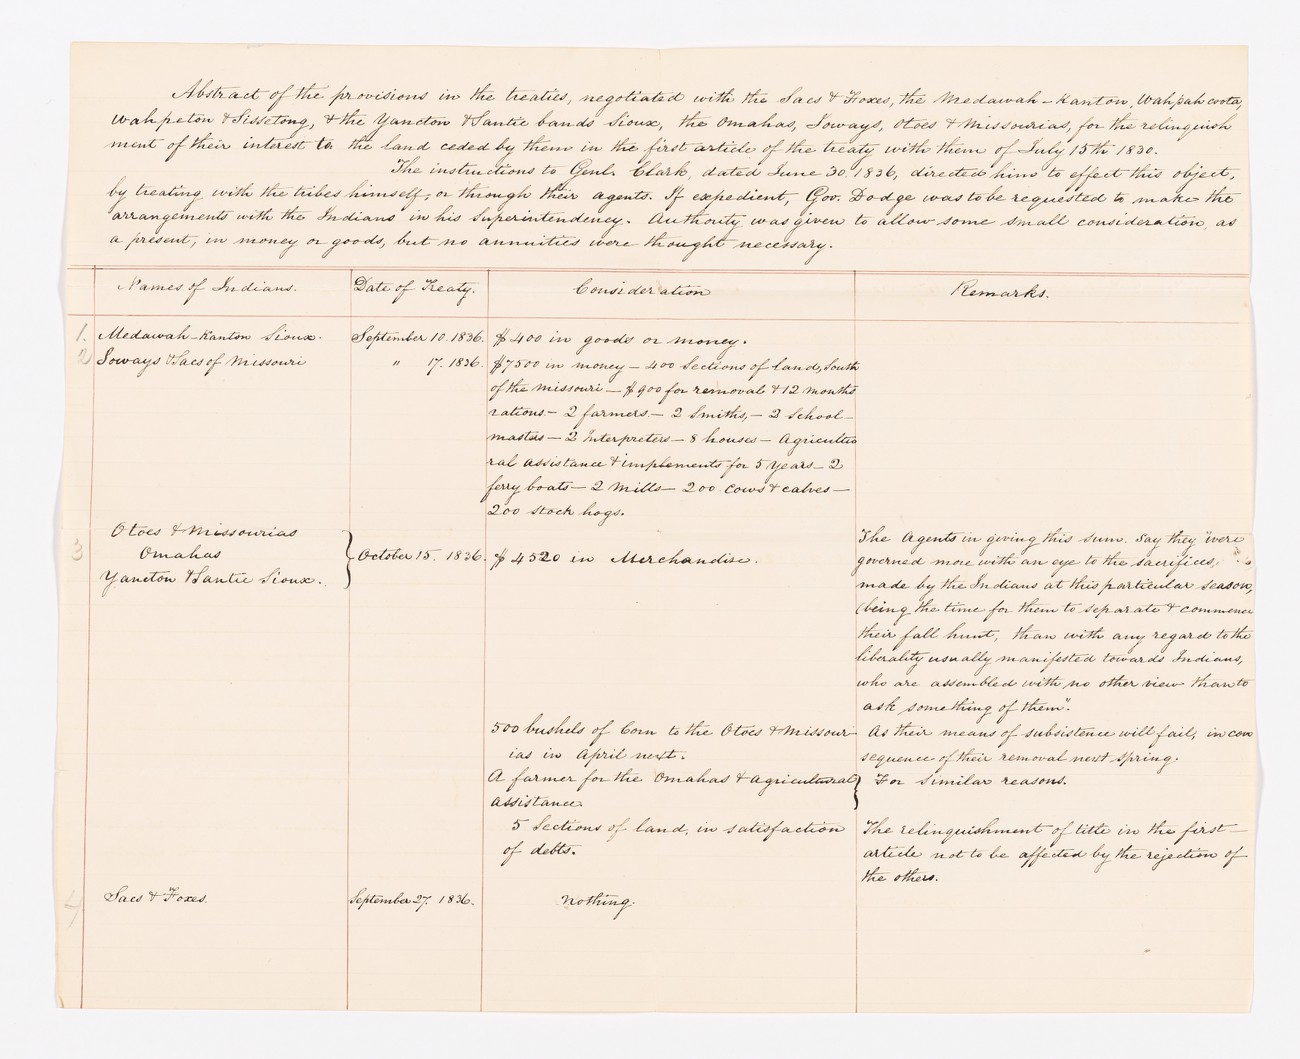 Abstract of the provisions in the treaties, negotiated with the Sacs & Foxes, the Medawah-Kanton, Wahpahcoota,
Wahpeton & Sissetong, & the Yancton & Santie bands Sioux, the Omahas, Ioways, Otoes & Missourias, for the relinquish
ment of their interest to the land ceded by them in the first article of the treaty with them of July 15th 1830.
The instructions to Genl. Clark, dated June 30. 1836, directed him to effect this object,
by treating with the tribes himself, or through their agents. If expedient, Gov. Dodge was to be requested to make the
arrangements with the Indians in his Superintendency. Authority was given to allow some small consideration, as
a present, in money or goods, but no annuities were thought necessary.
Names of Indians. Date of Treaty. Consideration Remarks.
1. Medawah-Kanton Sioux. September 10. 1836. $400 in goods or money.
2 Ioways & Sacs of Missouri " 17. 1836. $7500 in money — 400 Sections of land, South
of the Missouri — $900 for removal & 12 months
rations — 2 farmers — 2 Smiths, — 2 School-
masters — 2 Interpreters — 8 houses — Agricultu
ral assistance & implements for 5 years — 2
ferry boats — 2 Mills — 200 Cows & calves —
200 stock hogs.
3 Otoes & Missourias
Omahas
Yancton & Santie Sioux.
October 15. 1836. $4520 in Merchandise.
The Agents in giving this sum. Say they "were
governed more with an eye to the sacrifices,
made by the Indians at this particular season,
(being the time for them to separate & commence
their fall hunt, than with any regard to the
liberality usually manifested towards Indians,
who are assembled with no other view than to
ask something of them".
500 bushels of Corn to the Otoes & Missour
ias in April next.
As their means of subsistence will fail, in con
sequence of their removal next Spring.
A farmer for the Omahas & Agricultural
assistance
For Similar reasons.
5 Sections of land, in satisfaction
of debts.
The relinquishment of title in the first
article not to be affected by the rejection of
the others.
4 Sacs & Foxes. September 27. 1836. nothing.